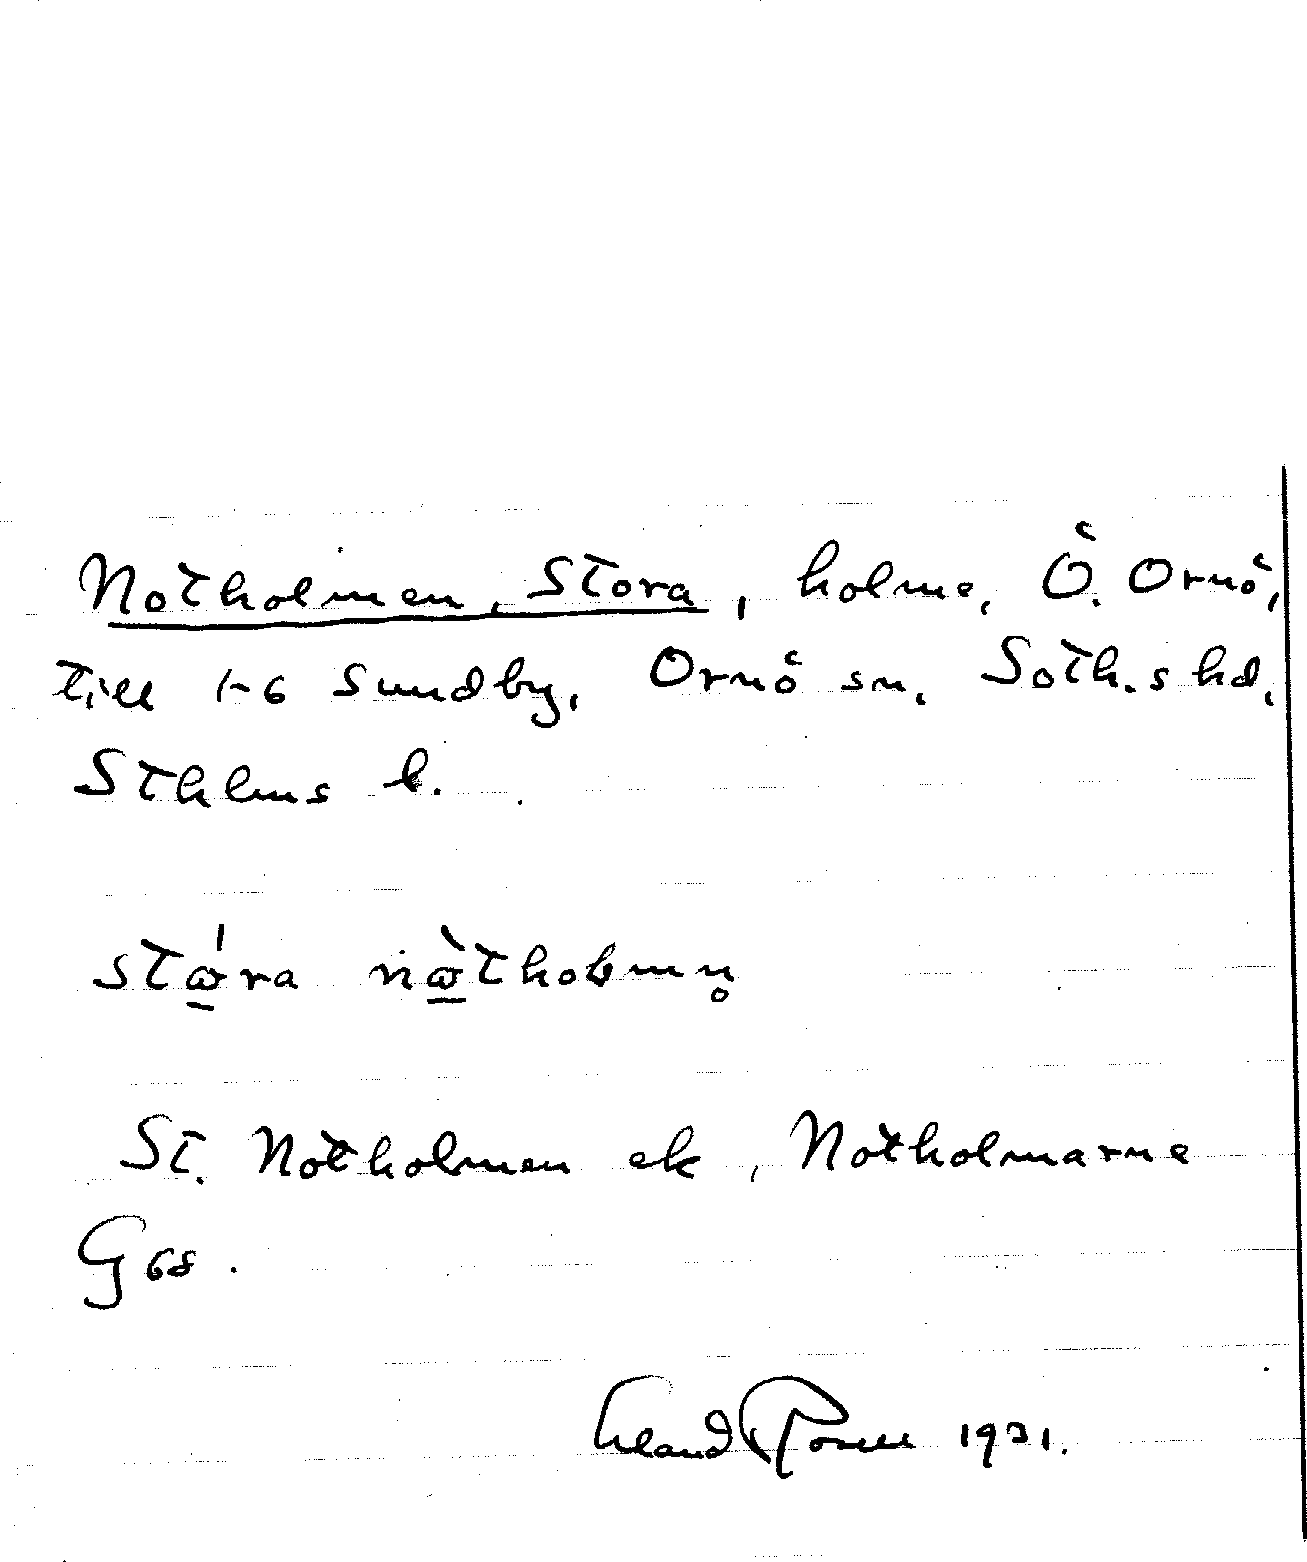 Notholmen, Stora, holme, Ö. Ornö,
till 1-6 Sundby, Ornö sn. Soth.s hd.
Sthlms l.
stώ̲ra nὼ̲tholmn̥
St. Notholmen ek, Notholmarne
G 68.
Rosell 1931.